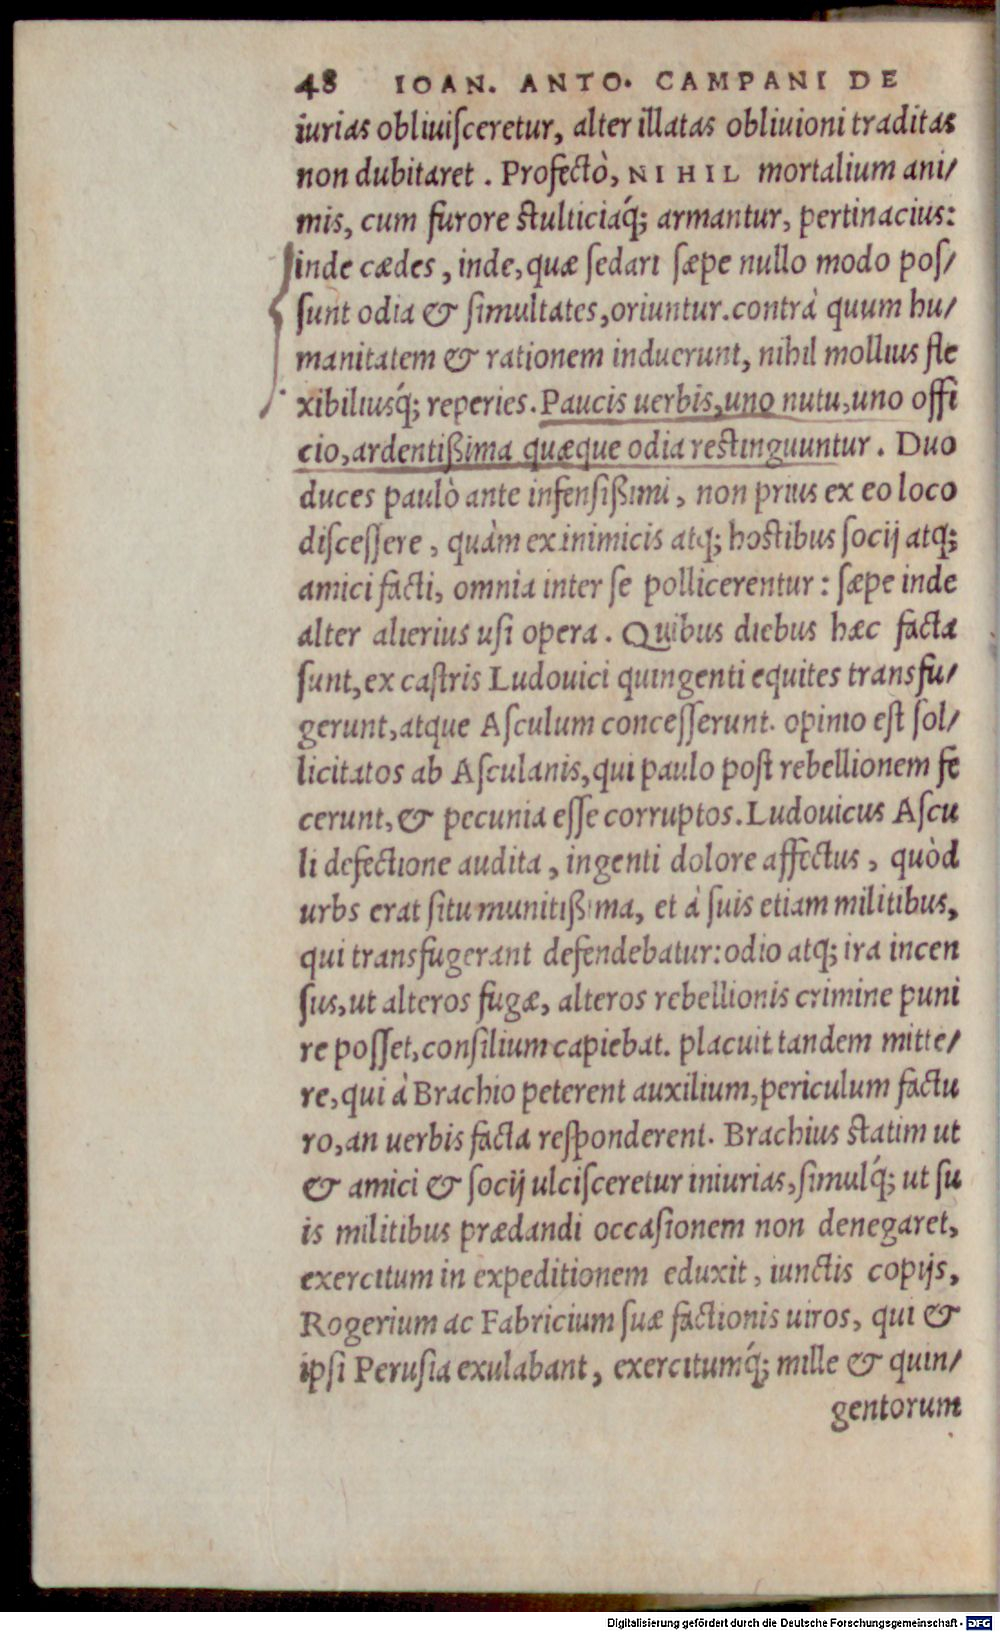 48 IOAN. ANTO. CAMPANI DE
iurias obliuiſceretur, alter illatas obliuioni traditas
non dubitaret. Profectò, NIHIL mortalium ani/
mis, cum furore ſtulticiaq́; armantur, pertinacius:
inde cædes, inde, quæ ſedari ſæpe nullo modo poſ/
ſunt odia & ſimultates, oriuntur. contrà quum hu/
manitatem & rationem induerunt, nihil mollius fle
xibiliusq́; reperies. Paucis uerbis, uno nutu, uno offi
cio, ardentißima quæque odia reſtinguuntur. Duo
duces paulò ante infenſißimi, non prius ex eo loco
diſceſſere, quàm ex inimicis atq; hoſtibus ſocij atq;
amici facti, omnia inter ſe pollicerentur: ſæpe inde
alter alterius uſi opera. Quibus diebus hæc facta
ſunt, ex caſtris Ludouici quingenti equites transfu/
gerunt, atque Aſculum conceſſerunt. opinio eſt ſol/
licitatos ab Aſculanis, qui paulo poſt rebellionem fe
cerunt, & pecunia eſſe corruptos. Ludouicus Aſcu
li defectione audita, ingenti dolore affectus, quòd
urbs erat ſitu munitißima, et à ſuis etiam militibus,
qui transfugerant defendebatur: odio atq; ira incen
ſus, ut alteros fugæ, alteros rebellionis crimine puni
re poſſet, conſilium capiebat. placuit tandem mitte/
re, qui à Brachio peterent auxilium, periculum factu
ro, an uerbis facta reſponderent. Brachius ſtatim ut
& amici & ſocij ulciſceretur iniurias, ſimulq́; ut ſu
is militibus prædandi occaſionem non denegaret,
exercitum in expeditionem eduxit, iunctis copijs,
Rogerium ac Fabricium ſuæ factionis uiros, qui &
ipſi Peruſia exulabant, exercitumq́; mille & quin/
gentorum
Digitalisierung gefördert durch die Deutsche Forschungsgemeinschaft - DFG